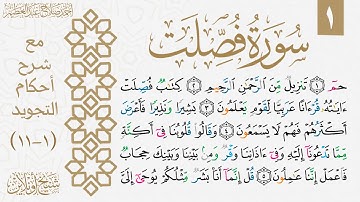 ١
سورة فصلت
أحمد صلاح عبد العظيم
مع
شرح
أحكام
التجويد
(١-١١)
حمٓ ١ تَنزِيلٌ مِّنَ ٱلرَّحْمَٰنِ ٱلرَّحِيمِ ٢ كِتَٰبٌ فُصِّلَتْ
ءَايَٰتُهُۥ قُرْءَانًا عَرَبِيًّا لِّقَوْمٍ يَعْلَمُونَ ٣ بَشِيرًا وَنَذِيرًا فَأَعْرَضَ
أَكْثَرُهُمْ فَهُمْ لَا يَسْمَعُونَ ٤ وَقَالُوا۟ قُلُوبُنَا فِىٓ أَكِنَّةٍ
مِّمَّا تَدْعُونَآ إِلَيْهِ وَفِىٓ ءَاذَانِنَا وَقْرٌ وَمِنۢ بَيْنِنَا وَبَيْنِكَ حِجَابٌ
فَٱعْمَلْ إِنَّنَا عَٰمِلُونَ ٥ قُلْ إِنَّمَآ أَنَا۠ بَشَرٌ مِّثْلُكُمْ يُوحَىٰٓ إِلَىَّ